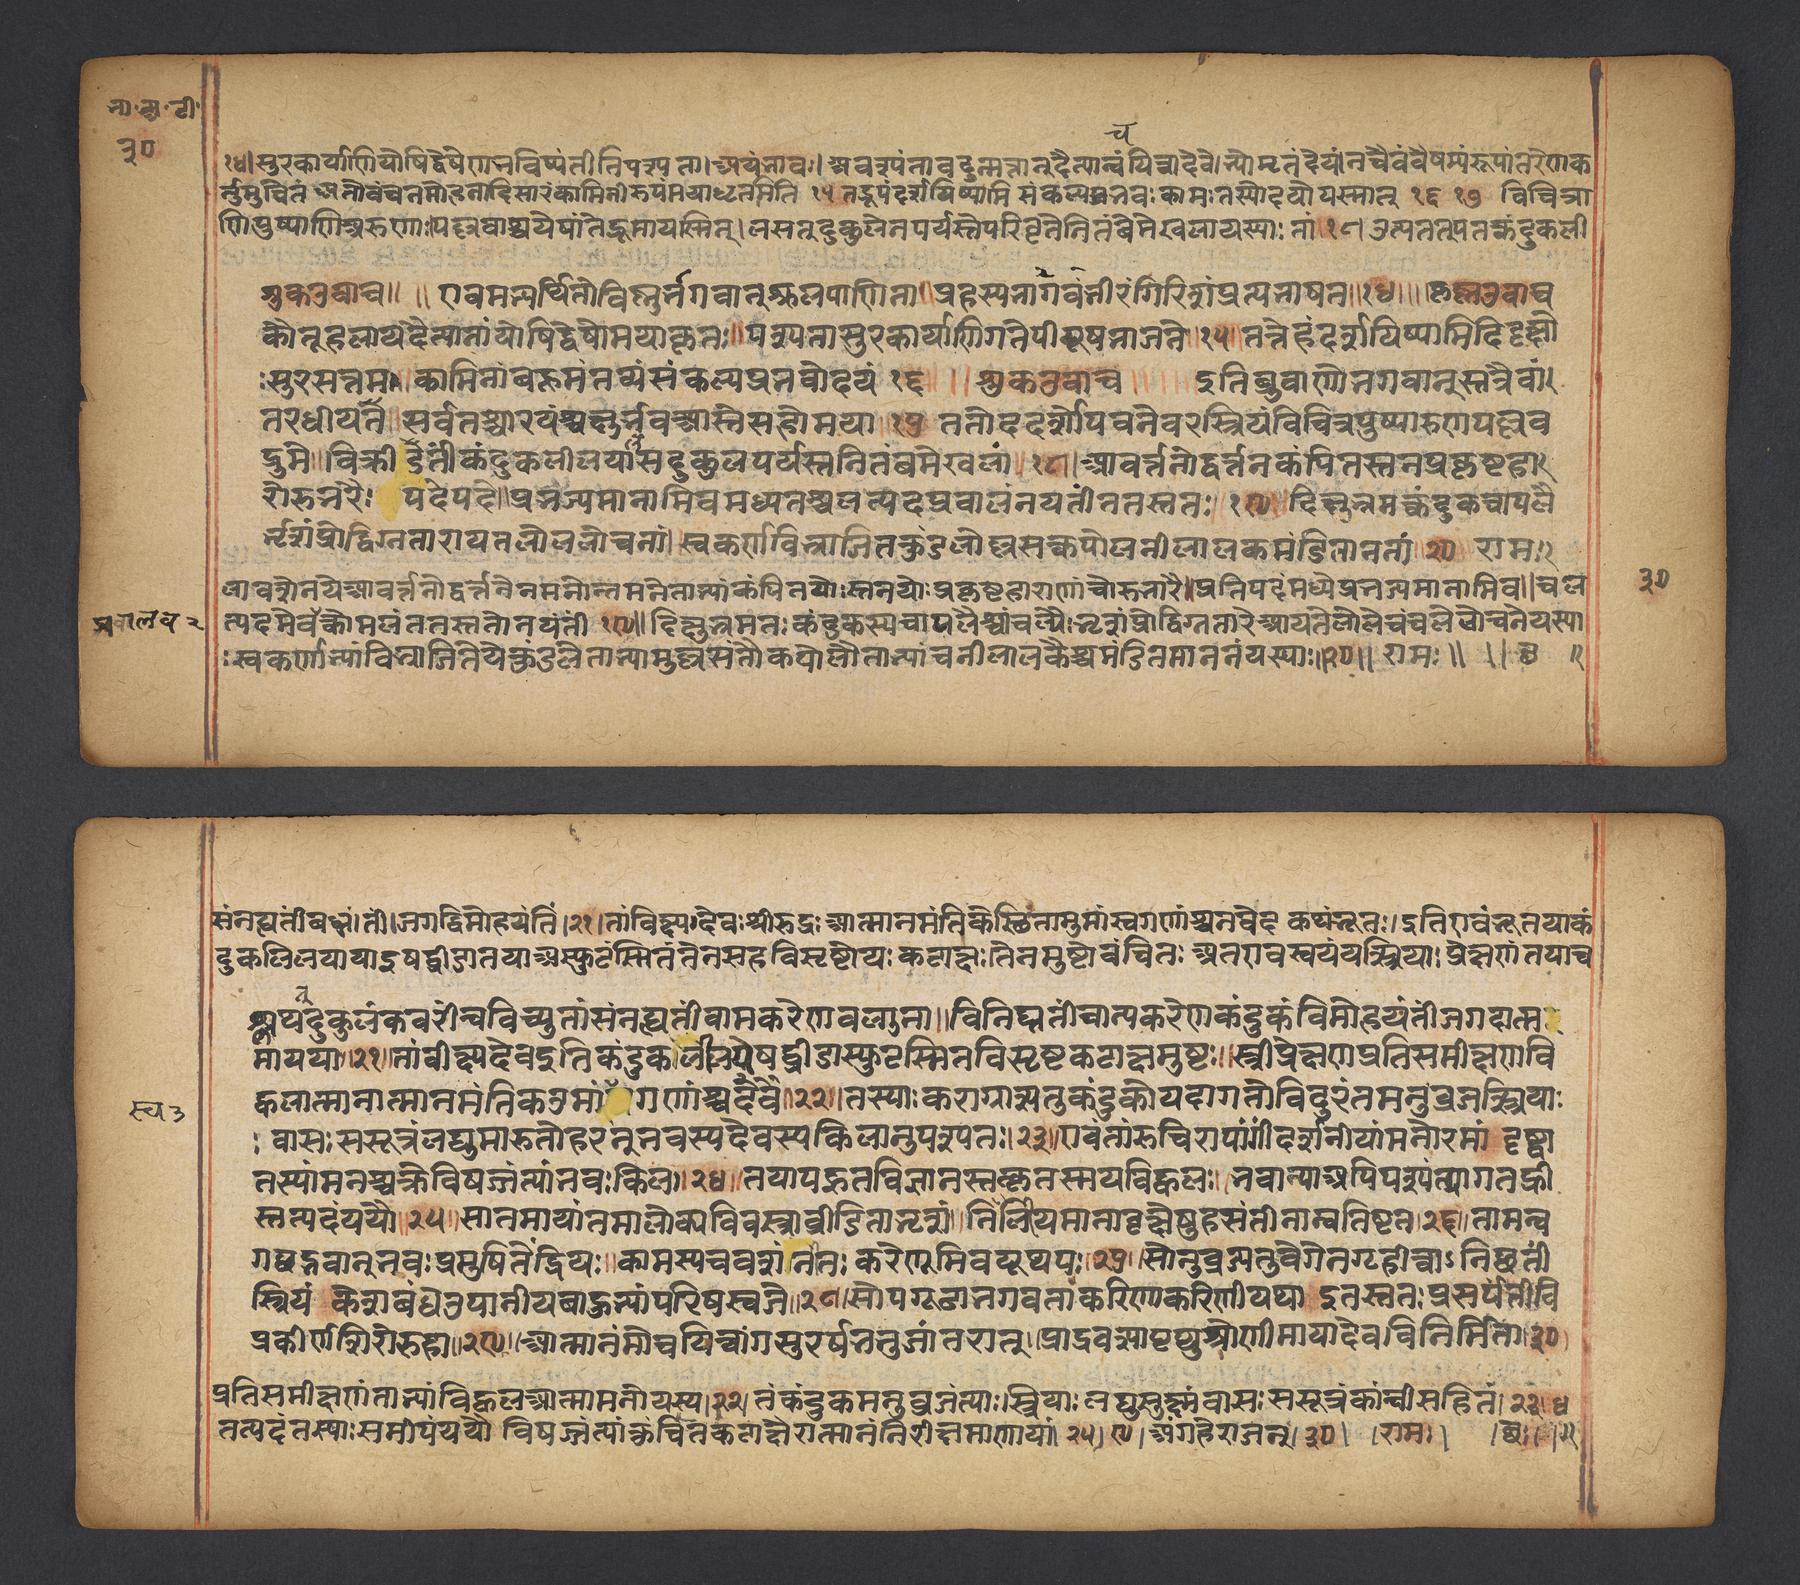 भा॰अ॰टी॰
३०
च
।१४। सुरकार्याणियोषिद्वेषेणभविष्यंतीतिपश्यता।अयंभावः।
र्तुमुचितं अतोवंचनमोहनादिसारंकामिनीरूपंमयाधृतमिति १५ तद्रूपंदर्शयिष्यामि संकल्पप्रभवः कामः तस्योदयोयस्मात् १६ १७ विचित्रा
णिपुष्पाणिअरुणाःपल्लवाश्चयेषांतेद्रुमायस्मिन्।लसतुदुकुलेनपर्यस्तेपरिवृतेनितंबेमेखलायस्याः तां १८ उत्पतत्पतत्कंदुकली
शुकउवाच॥ ॥ एवमभ्यर्थितोविष्णुर्भगवान्शूलपाणिना॥प्रहस्यभागवंभीरंगिरिशंप्रत्यभाषत॥१४॥॥कृष्णउवाच
कौतूहलायदैत्यानांयोषिद्वेषोमयाकृतः॥पश्यतासुरकार्याणिगतेपीयूषभाजने॥१५ तत्तेहंदर्शयिष्यामिदिदृक्षो
ःसुरसत्तम॥कामिनांबहुमंतव्यंसंकल्पप्रभवोदयं १६॥ ॥शुकउवाच इतिब्रुवाणोभगवान्स्तत्रैवां
तरधीयत॥सर्वतश्चारयंश्चक्षुर्भवआस्तेसहोमया॥१७ ततोददर्शोपवनेवरस्त्रियंविचित्रपुष्पारुणपल्लव
द्रुमे॥विक्रीडंतींकंदुकलीलयालसद्दुकुलपर्यस्तनितंबमेखलां॥१८॥आवर्त्तनोद्वर्त्तनकंपितस्तनप्रकृष्टहा
रोरुभरैः पदेपदे॥प्रभज्यमानामिवमध्यतश्चलत्पदप्रवालंनयतींततस्ततः॥१९॥ दिक्षुभ्रमत्कंदुकचापलै
र्भृशंप्रोद्विग्नतारायतलोललोचनां॥स्वकर्णविभ्राजितकुंडलोल्लसत्कपोलनीलालकमंडिताननां॥२० राम॥
लावशेनयेआवर्त्तनोद्वर्त्तनेनमनोन्नमनेताभ्यांकंपितयोःस्तनयोःप्रकृष्टहाराणांचोरुभारैः॥प्रतिपदंमध्येप्रभज्यमानामिव॥चल
त्पदमेवंकोमलंततस्ततोनयंतीं १९॥दिक्षुभ्रमतःकंदुकस्यचापलैश्चांचल्यैःभृशंप्रोद्विग्नतारेआयतेलोलेचंचलेलोचनेयस्या
ःस्वकर्णाभ्यांविभ्राजितेयेकुंडलेताभ्यामुल्लसंतौकपोलौताभ्यांचनीलालकैश्चमंडितमाननंयस्याः॥२०॥ रामः॥ ॥ छ ॥
प्रवालव २
३०
संनह्यतींबध्नं।तीं।जगद्विमोहयंतिं।२१।तांवीक्ष्यदेवःश्रीरुद्रःआत्मानमंतिकेस्थितामुमांस्वगणांश्चनवेद कथंभूतः।इतिएवंभूतयाकं
दुकलिलयायाइषद्व्रीडातयाअस्फुटंस्मितंतेनसहविसृष्टोयःकटाक्षःतेनमुष्टोवंचितः अतएवस्वयंयस्त्रियाःप्रेक्षणंतयाच
श्लथद्दुकुलंकबरींचविच्युतांसंनह्यतींवामकरेणवल्गुना॥विनिघ्नतींचान्यकरेणकंदुकंविमोहयंतींजगदात्म
मायया॥२१॥तांवीक्ष्यदेवइतिकंदुकलीलयेषद्व्रीडास्फुटस्मितविसृष्टकटाक्षमुष्टः॥स्त्रीप्रेक्षणप्रतिसमीक्षणवि
ह्वलात्मानात्मानमंतिकउमांगणांश्चवेद॥२२॥तस्याःकराग्रात्सतुकंदुकोयदागतोविदुरंतमनुव्रजत्स्त्रियाः
ःवासःससूत्रंलघुमारुतोहरत्नुभवस्यदेवस्यकिलानुपश्यतः।२३।एवंतांरुचिरापांगींदर्शनीयांमनोरमां दृष्ट्वा
तस्यांमनश्चक्रेविषज्जंत्यांभवःकिल॥२४॥ तयापहृतविज्ञानस्तत्कृतस्मरविह्वलः॥भवान्याअपिपश्यंत्यागतह्री
स्तत्पदंययौ॥२५॥सातमायांतमालोक्यविवस्त्राव्रीडिताभृशं॥निलीयमानावृक्षेषुहसंतीनान्वतिष्टत॥२६॥तामन्व
गच्छद्भगवान्भवःप्रमुषितेंद्रियः॥कामस्यचवशंनीतःकरेणुमिवयूथपः।२७॥सोनुव्रज्यतुवेगेनगृहीत्वाऽनिच्छतीं
स्त्रियं केशबंधउपानीयबाहुभ्यांपरिषस्वजे॥२८।सोपगूढाभगवतांकरिणाकरिणीयथा इतस्ततःप्रसर्पंतीवि
प्रकीर्णशिरोरुहा॥२९॥आत्मानंमोचयित्वांगसुरर्षभभुजांतरात्॥प्राद्रवत्सापृथुश्रोणीमायादेवविनिर्मिता॥३०
प्रतिसमीक्षणंताभ्यांविह्वलआत्मामनोयस्य।२२।तंकंदुकमनुव्रजंत्याः।स्त्रियाः लघुसुक्ष्मंवासःससूत्रंकांचीसहितं।२३।४
तत्पदंतस्याःसमीपंययौ विषज्जंत्यांकुंचितकटाक्षैरात्मानंनिरीक्षमाणायां।२५।९।अंगहेराजन्।३०। ।राम। ।छ।॥
स्थ ३